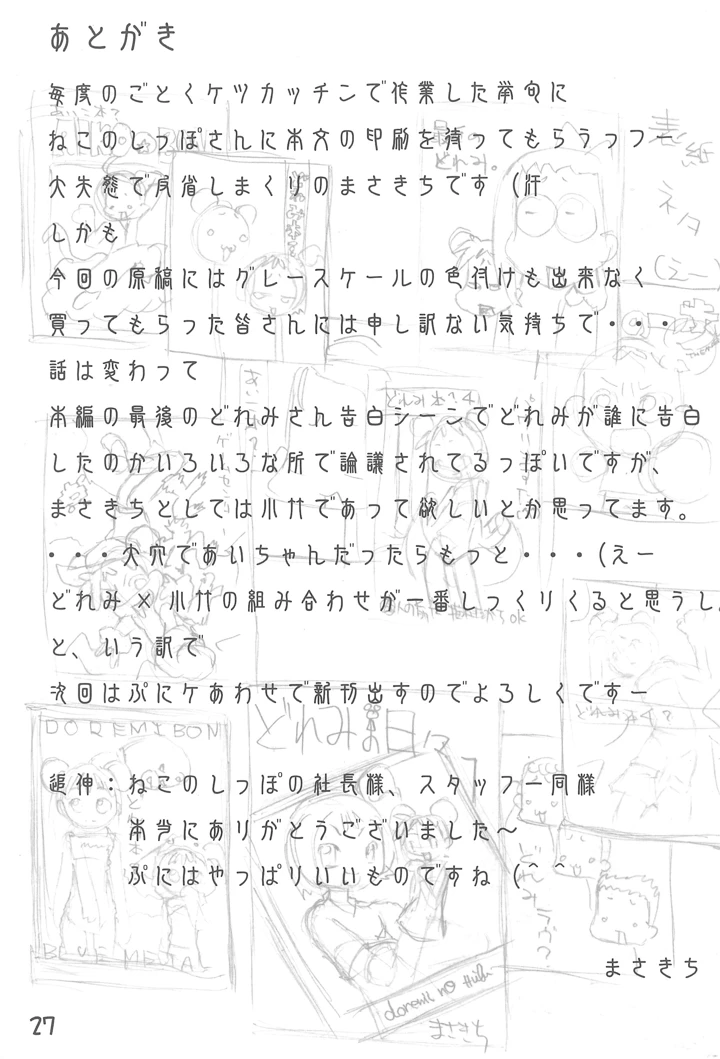 あとがき
毎度のごとくケツカッチンで作業した挙句に
ねこのしっぽさんに本文の印刷を待ってもらうっつー
大失態で反省しまくりのまさきちです（汗
しかも
今回の原稿にはグレースケールの色付けも出来なく
買ってもらった皆さんには申し訳ない気持ちで・・・
話は変わって
本編の最後のどれみさん告白シーンでどれみが誰に告白
したのかいろいろな所で論議されてるっぽいですが、
まさきちとしては小竹であって欲しいとか思ってます。
・・・大穴であいちゃんだったらもっと・・・（えー
どれみ×小竹の組み合わせが一番しっくりくると思うし
と、いう訳で
次回はぷにケあわせで新刊出すのでよろしくですー
追伸：ねこのしっぽの社長様、スタッフ一同様
本当にありがとうございました〜
ぷにはやっぱりいいものですね（^ ^
まさきち
27
表紙
ネタ
（えー）
最新の
どれみ。
どれみ本？4
DOREMIBON
BLUE MEDIA
どれみの日々
どれみラヴ？
doremi no Hibi
まさきち